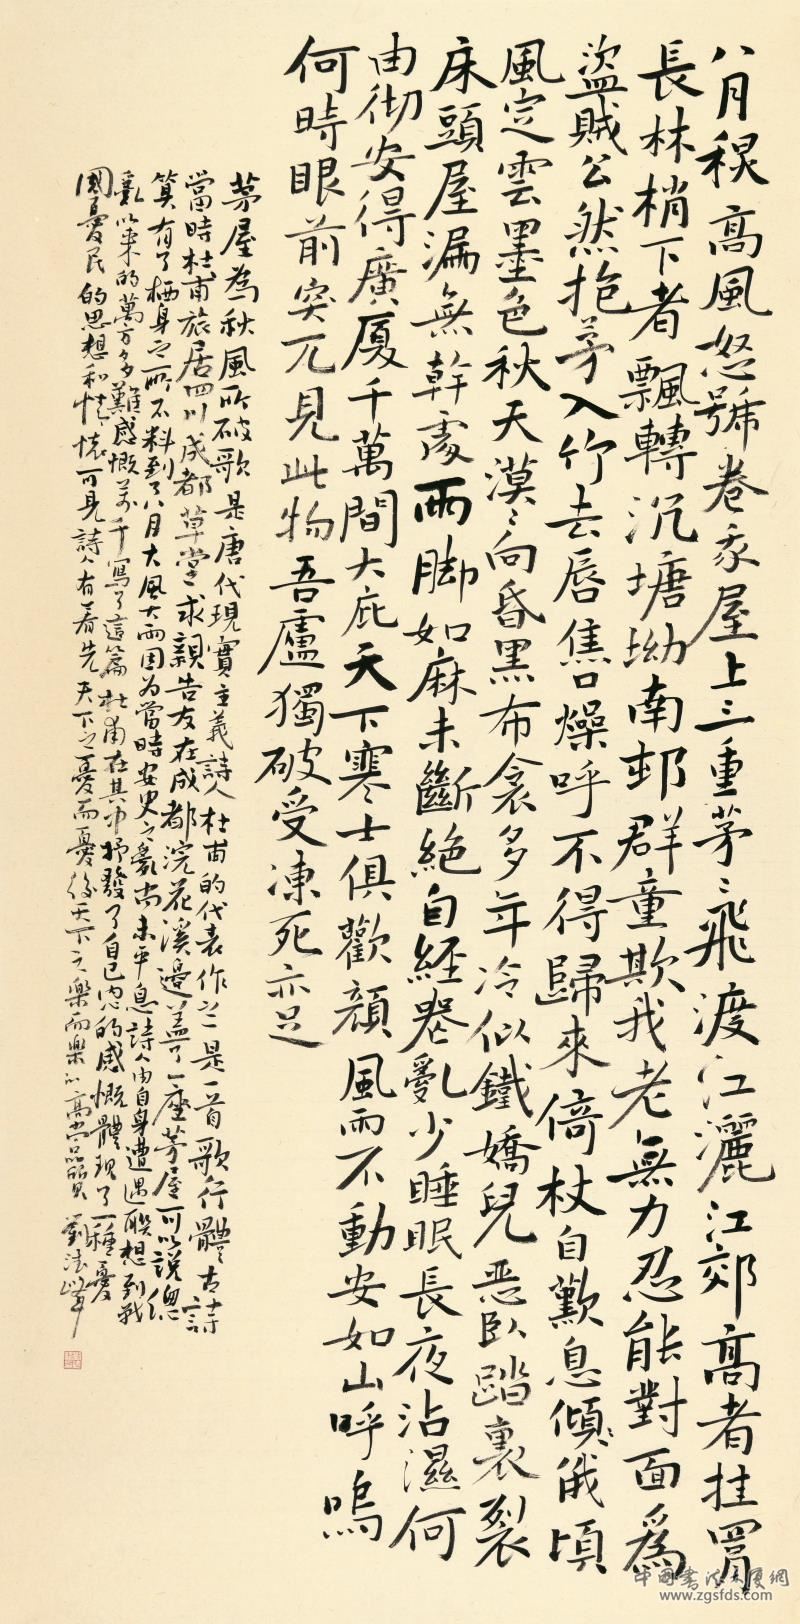 八月秋高風怒號卷我屋上三重茅〻飛渡江灑江郊高者挂罥
長林梢下者飄轉沉塘坳南邨群童欺我老無力忍能對面爲
盜賊公然抱茅入竹去唇焦口燥呼不得歸來倚杖自歎息傾〻俄頃
風定雲墨色秋天漠〻向昏黑布衾多年冷似鐵嬌兒惡臥踏裏裂
床頭屋漏無幹處雨脚如麻未斷絕自經喪亂少睡眠長夜沾濕何
由彻安得廣厦千萬間大庇天下寒士俱歡顏風雨不動安如山呼嗚
何時眼前突兀見此物吾廬獨破受凍死亦足
茅屋為秋風所破歌是唐代現實主義詩人杜甫的代表作之一是一首歌行體古詩
當時杜甫旅居四川成都草堂求親告友在成都浣花溪邊蓋了一座茅屋可以說總
算有了栖身之所不料到了八月大風大雨因为當時安史之亂尚未平息詩人由自身遭遇联想到戰
亂以來的萬方多難感慨萬千寫了這篇杜甫在其中抒發了自己内心的感慨體現了一種憂
國憂民的思想和情懷可見詩人有着先天下之憂而憂後天下之樂而樂的高尚品質 劉法峰
中国書法大厦網
www.zgsfds.com